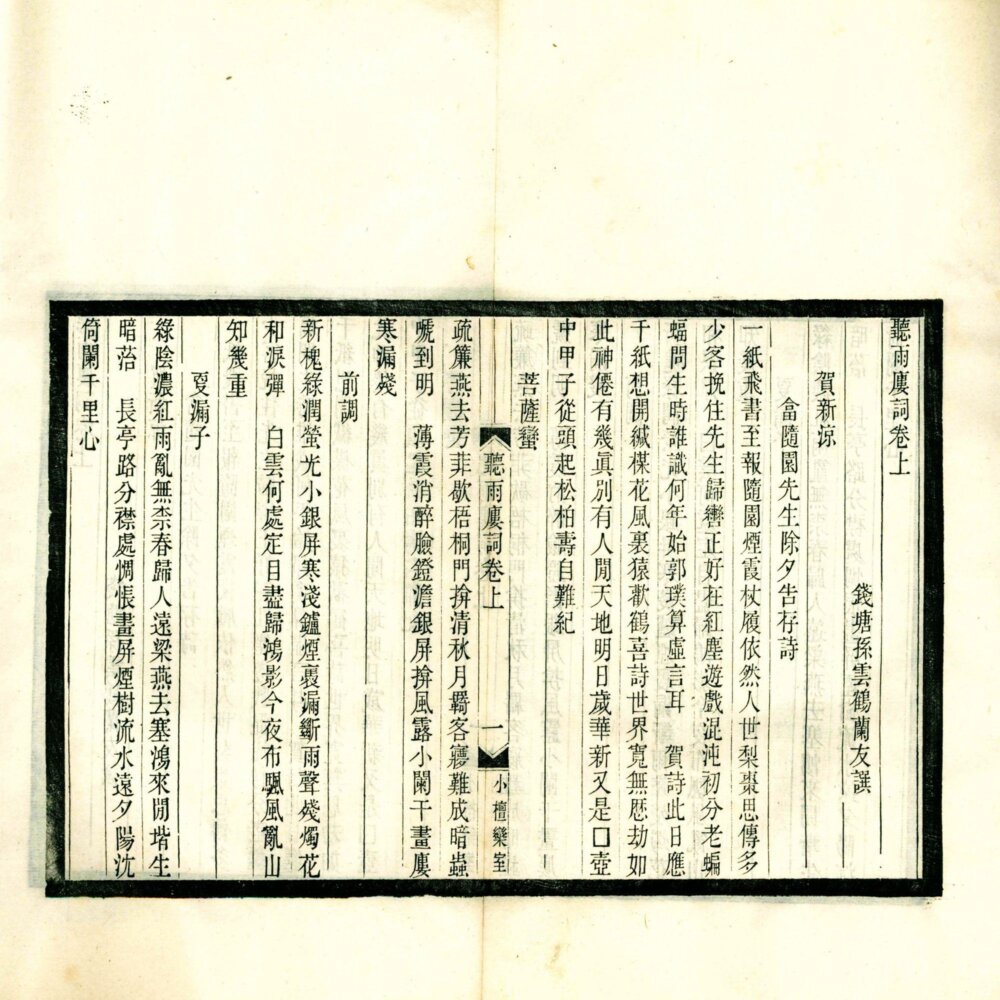 聽雨廔詞卷上
錢塘孫雲鶴蘭友譔
賀新涼
畣隨園先生除夕告存詩
一紙飛書至報隨園煙霞杖履依然人世梨棗思傳多
少客挽住先生歸轡正好在紅塵遊戲混沌初分老蝙
蝠問生時誰識何年始郭璞算虛言耳　賀詩此日應
千紙想開緘楳花風裏猿歡鶴喜詩世界寬無厯劫如
此神僊有幾眞別有人閒天地明日歲華新又是□壺
中甲子從頭起松柏壽自難紀
菩薩蠻
疏簾燕去芳菲歇梧桐門揜清秋月羇客寱難成暗蟲
嗁到明　薄霞消醉臉鐙澹銀屏揜風露小闌干畫廔
寒漏殘
前調
新槐綠潤螢光小銀屏寒淺鑪煙裊漏斷雨聲殘燭花
和淚彈　白雲何處定目盡歸鴻影今夜布颿風亂山
知幾重
夏漏子
綠陰濃紅雨亂無柰春歸人遠梁燕去塞鴻來閒堦生
暗菭　長亭路分襟處惆悵畫屏煙樹流水遠夕陽沈
倚闌千里心
聽雨廔詞卷上
一
小檀欒室